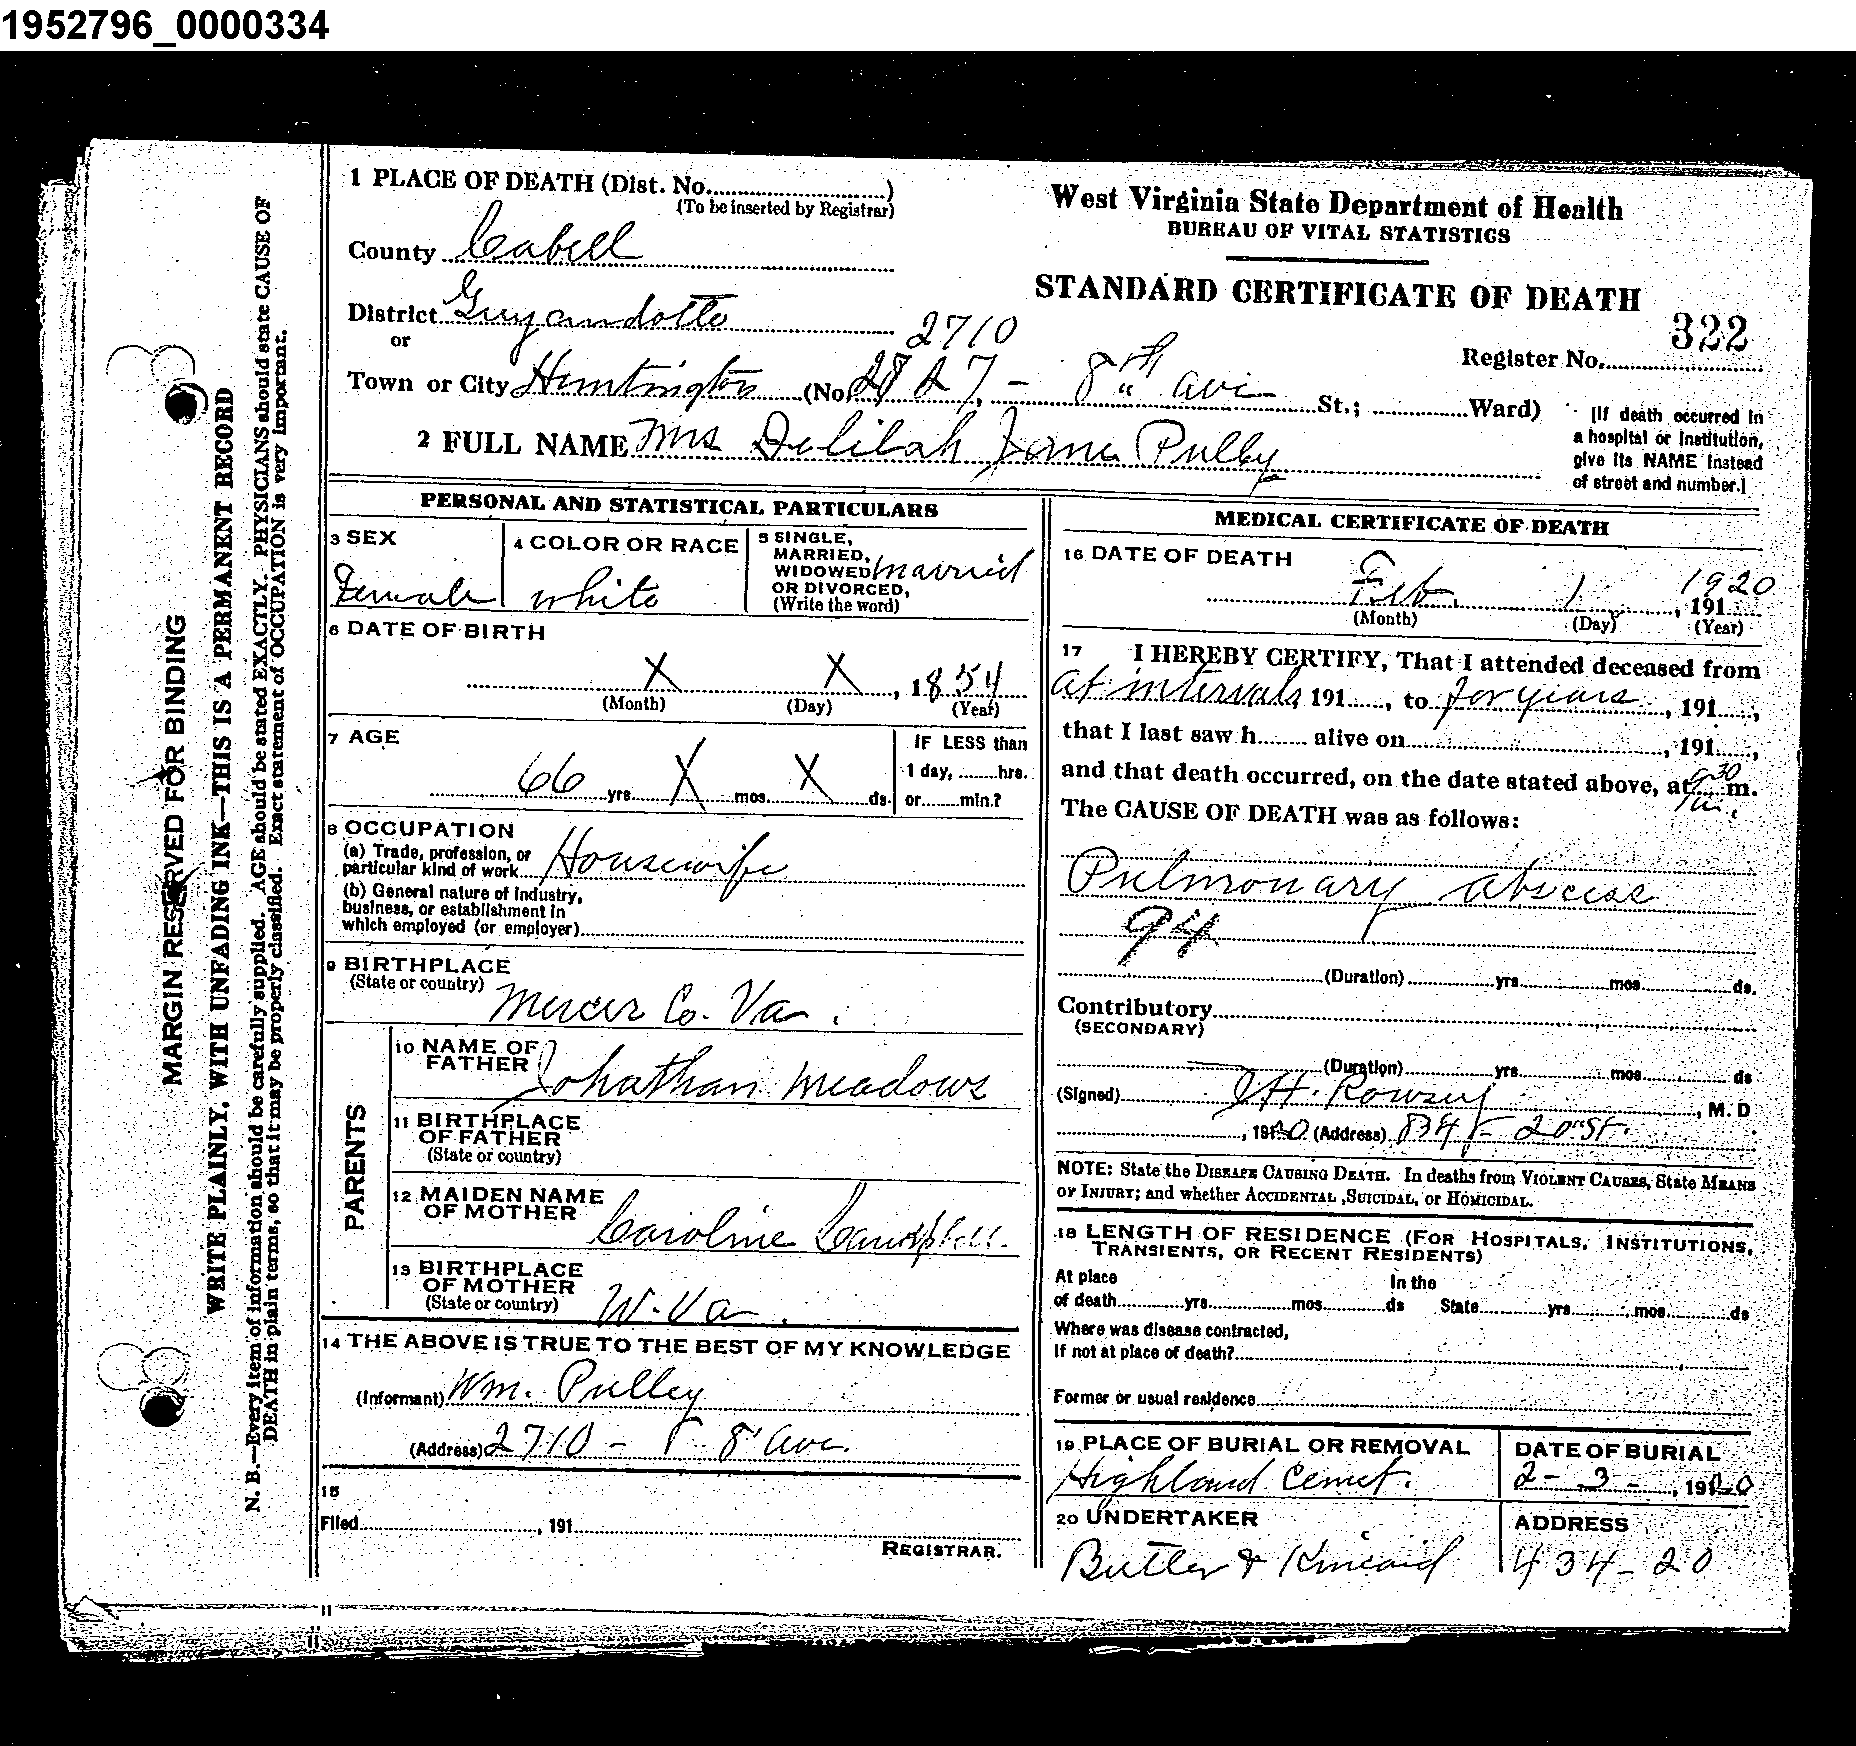 1952796_0000334
1 PLACE OF DEATH (Dist. No.............)
(To be inserted by Registrar)
County Cabell
District Guyandotte
or
2710
Town or City Huntington (No. 2827 - 8th ave St.; ............Ward)
2 FULL NAME Mrs Delilah Jane Pulley
West Virginia State Department of Health
BUREAU OF VITAL STATISTICS
STANDARD CERTIFICATE OF DEATH
322
Register No.
[If death occurred in
a hospital or institution,
give its NAME instead
of street and number.]
MARGIN RESERVED FOR BINDING
WRITE PLAINLY, WITH UNFADING INK—THIS IS A PERMANENT RECORD
N. B.—Every item of information should be carefully supplied. AGE should be stated EXACTLY. PHYSICIANS should state CAUSE OF
DEATH in plain terms, so that it may be properly classified. Exact statement of OCCUPATION is very important.
PERSONAL AND STATISTICAL PARTICULARS
3 SEX
Female
4 COLOR OR RACE
White
5 SINGLE,
MARRIED,
WIDOWED
OR DIVORCED,
(Write the word)
Married
6 DATE OF BIRTH
X X , 1854
(Month) (Day) (Year)
7 AGE
66 yrs. X mos. X ds.
IF LESS than
1 day, ........hrs.
or........min.?
8 OCCUPATION
(a) Trade, profession, or
particular kind of work Housewife
(b) General nature of industry,
business, or establishment in
which employed (or employer)
9 BIRTHPLACE
(State or country)
Mercer Co. Va.
PARENTS
10 NAME OF
FATHER
Johathan Meadows
11 BIRTHPLACE
OF FATHER
(State or country)
12 MAIDEN NAME
OF MOTHER
Caroline Campbell.
13 BIRTHPLACE
OF MOTHER
(State or country)
W. Va.
14 THE ABOVE IS TRUE TO THE BEST OF MY KNOWLEDGE
(Informant) Wm. Pulley
(Address) 2710 - 8" ave.
15
Filed , 191
REGISTRAR.
MEDICAL CERTIFICATE OF DEATH
16 DATE OF DEATH
Feb. 1 , 191 1920
(Month) (Day) (Year)
17 I HEREBY CERTIFY, That I attended deceased from
at intervals 191....., to for years , 191.....,
that I last saw h........ alive on , 191.....,
and that death occurred, on the date stated above, at 30 m.
The CAUSE OF DEATH was as follows:
Pulmonary abscess
94
(Duration) yrs. mos. ds.
Contributory
(SECONDARY)
(Duration) yrs. mos. ds
(Signed) Rowsey , M. D
, 1920 (Address) 834 - 20" St.
NOTE: State the DISEASE CAUSING DEATH. In deaths from VIOLENT CAUSES, State MEANS
OF INJURY; and whether ACCIDENTAL, SUICIDAL, or HOMICIDAL.
18 LENGTH OF RESIDENCE (FOR HOSPITALS, INSTITUTIONS,
TRANSIENTS, OR RECENT RESIDENTS)
At place In the
of death yrs. mos. ds State yrs. mos. ds
Where was disease contracted,
If not at place of death?
Former or usual residence
19 PLACE OF BURIAL OR REMOVAL
Highland Cemet.
DATE OF BURIAL
2 - 3 - , 1920
20 UNDERTAKER
Butler & Kincaid
ADDRESS
434 - 20